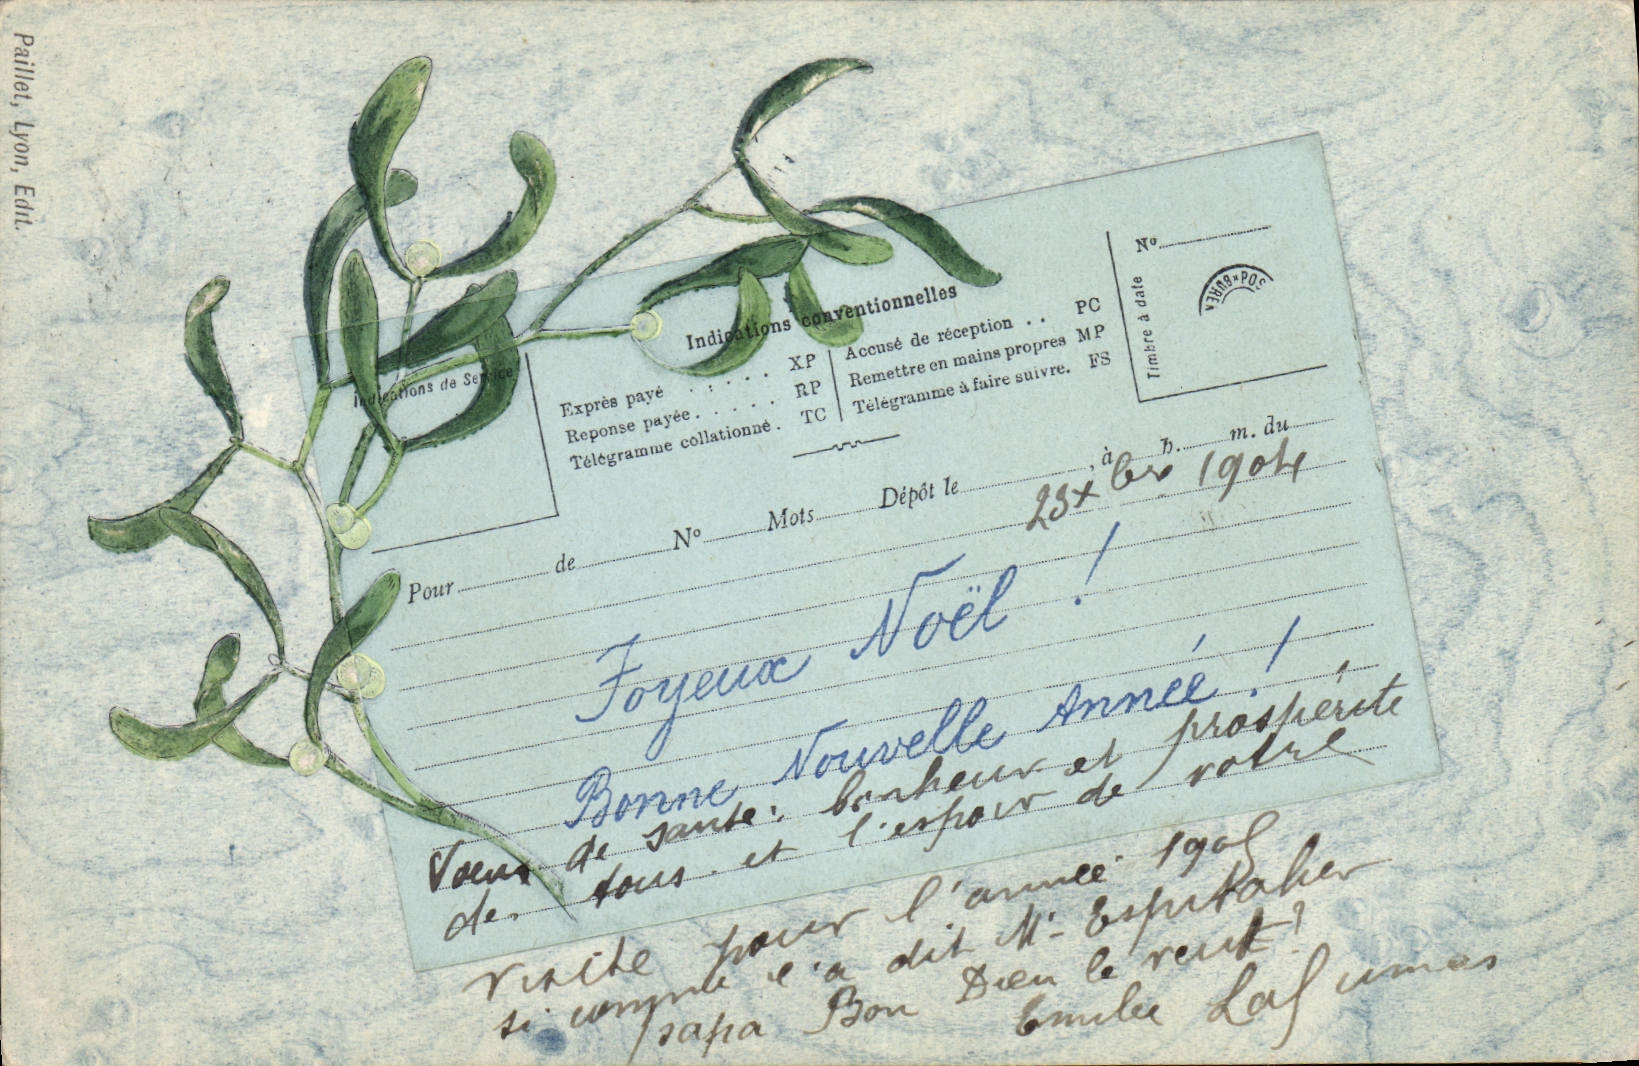 Paillet, Lyon, Edit.
Indications de Service
Indications conventionnelles
Exprès payé . . . . . XP
Reponse payée . . . . . RP
Télégramme collationné . TC
Accusé de réception . . PC
Remettre en mains propres MP
Télégramme à faire suivre. FS
Nº
Timbre à date
Pour de Nº Mots Dépôt le , à h. m. du
23 Xbre 1904
Joyeux Noël !
Bonne Nouvelle Année !
Vœux de santé: bonheur et prospérité
de tous et l'espoir de votre
visite pour l'année 1905
si comme l'a dit Mr
papa Bon Dieu le veut!
Emilie